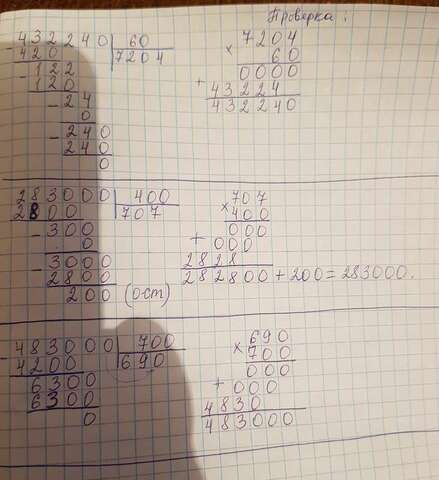 Проверка:
- 432240 | 60
420 | 7204
- 122
120
- 24
0
- 240
240
0
× 7204
60
0000
+ 43224
432240
283000 | 400
2800 | 707
- 300
0
- 3000
2800
200 (ост)
× 707
400
000
+ 000
2828
282800 + 200 = 283000.
- 483000 | 700
4200 | 690
6300
6300
0
× 690
700
000
+ 000
4830
483000